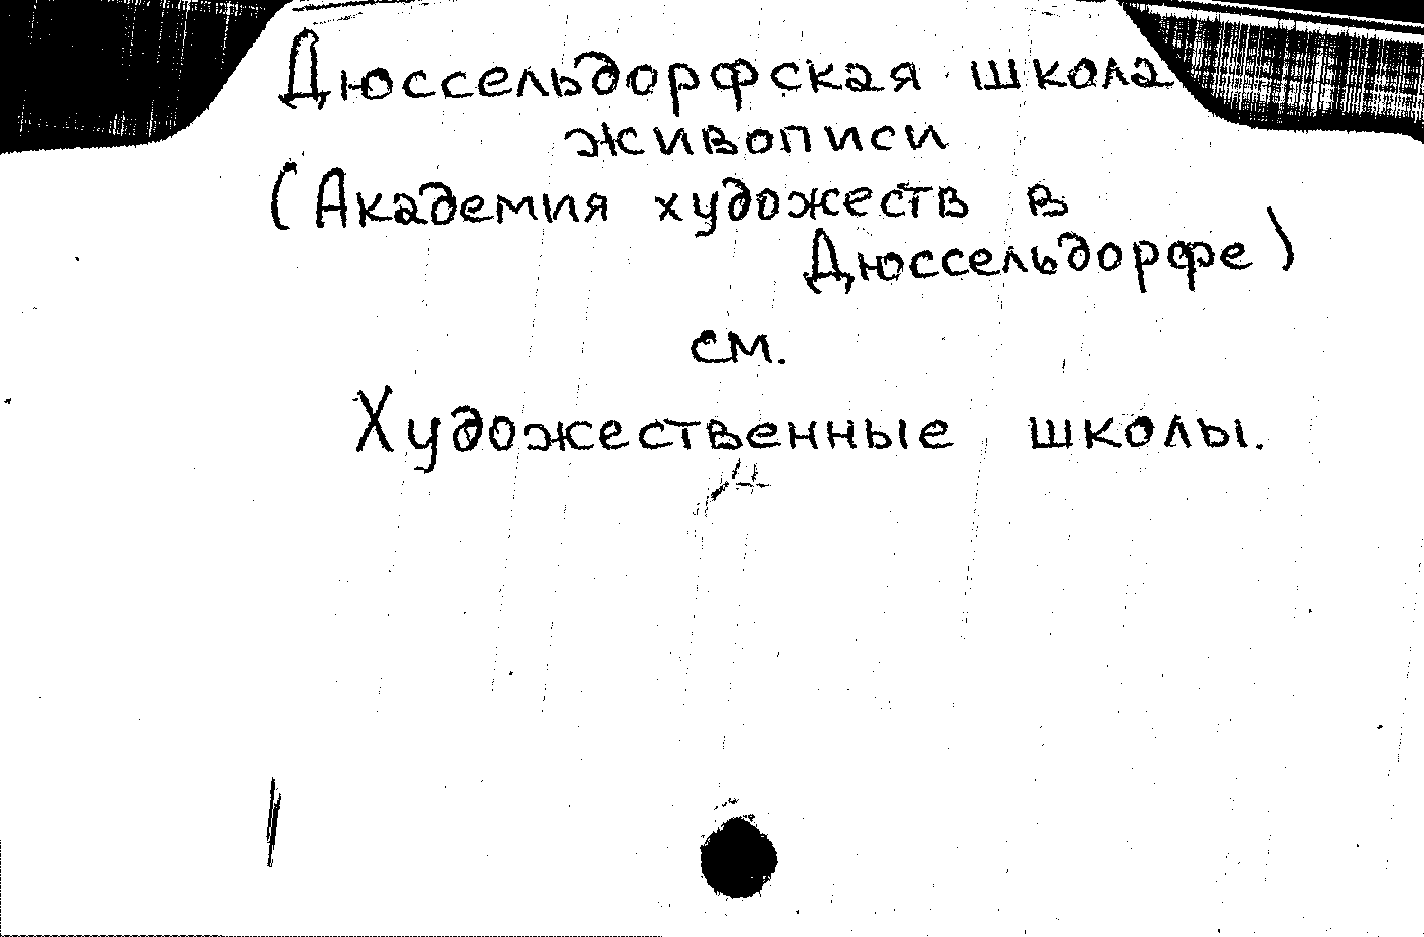 Дюссельдорфская школа
живописи
(Академия художеств в
Дюссельдорфе)
см.
Художественные школы.